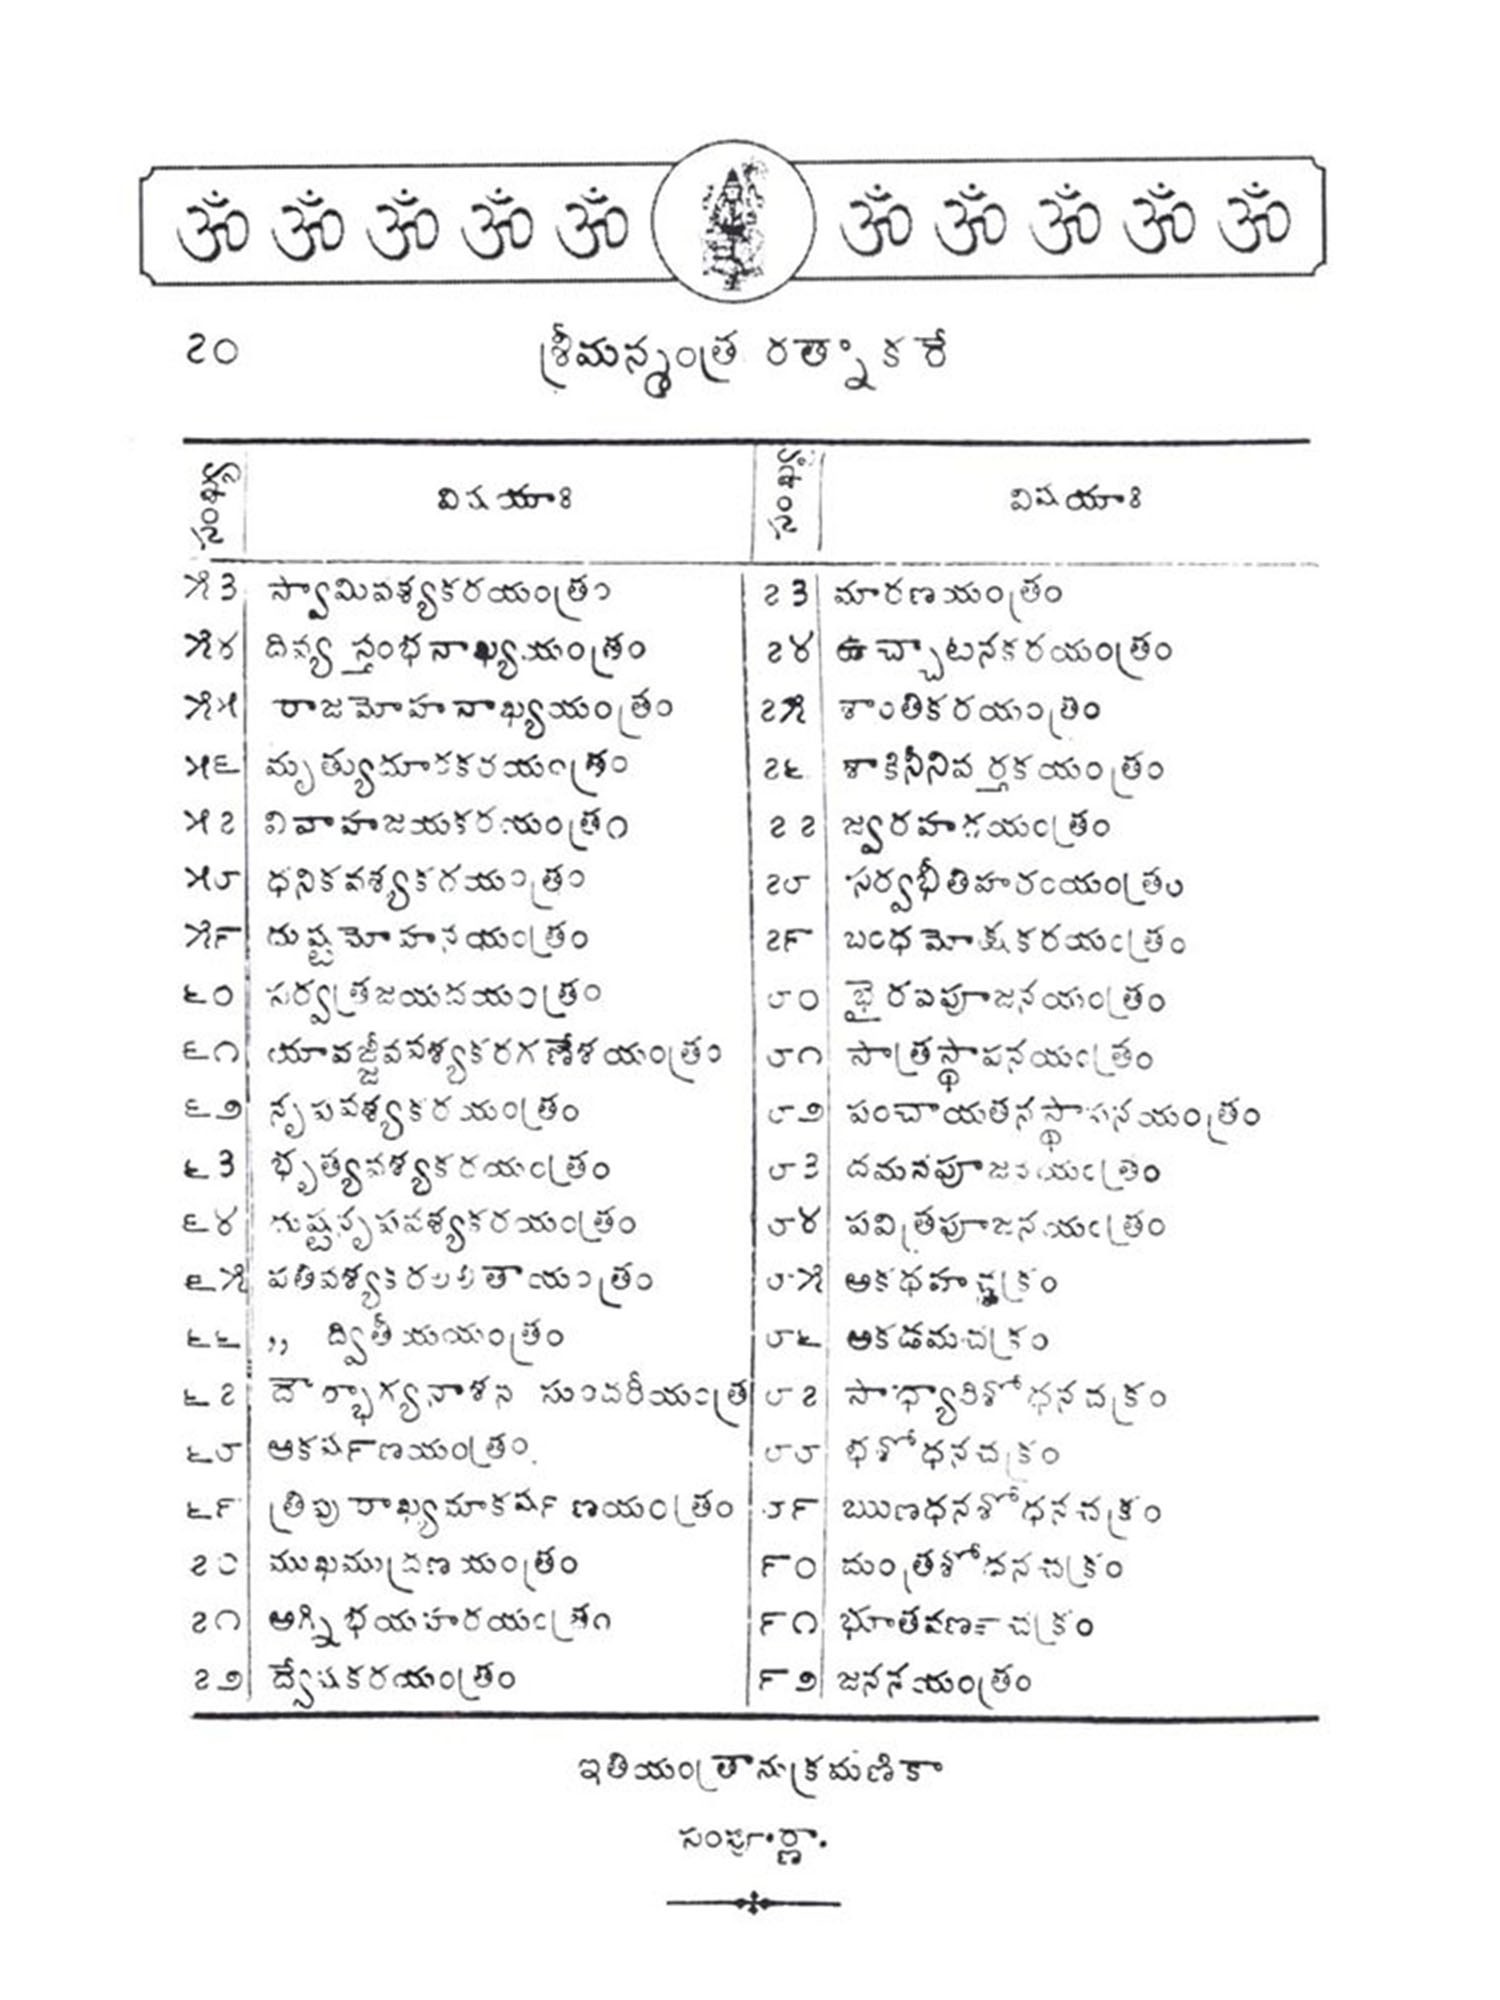 ॐ ॐ ॐ ॐ ॐ ॐ ॐ ॐ ॐ ॐ
౭౦ శ్రీమన్మంత్ర రత్నాకరే
సంఖ్య విషయాః
౫౩ స్వామివశ్యకరయంత్రం
౫౪ దివ్య స్తంభనాఖ్యయంత్రం
౫౫ రాజమోహనాఖ్యయంత్రం
౫౬ మృత్యుదూరకరయంత్రం
౫౭ వివాహజయకరయంత్రం
౫౮ ధనికవశ్యకరయంత్రం
౫౯ దుష్టమోహనయంత్రం
౬౦ సర్వత్రజయదయంత్రం
౬౧ యావజ్జీవవశ్యకరగణేశయంత్రం
౬౨ నృపవశ్యకరయంత్రం
౬౩ భృత్యవశ్యకరయంత్రం
౬౪ దుష్టనృపవశ్యకరయంత్రం
౬౫ పతివశ్యకరలలితాయంత్రం
౬౬ ,, ద్వితీయయంత్రం
౬౭ దౌర్భాగ్యనాశన సుందరీయంత్ర
౬౮ ఆకర్షణయంత్రం.
౬౯ త్రిపురాఖ్యమాకర్షణయంత్రం
౭౦ ముఖముద్రణయంత్రం
౭౧ అగ్నిభయహరయంత్రం
౭౨ ద్వేషకరయంత్రం
సంఖ్య విషయాః
౭౩ మారణయంత్రం
౭౪ ఉచ్చాటనకరయంత్రం
౭౫ శాంతికరయంత్రం
౭౬ శాకినీనివర్తకయంత్రం
౭౭ జ్వరహరయంత్రం
౭౮ సర్వభీతిహరంయంత్రం
౭౯ బంధమోక్షకరయంత్రం
౮౦ భైరవపూజనయంత్రం
౮౧ పాత్రస్థాపనయంత్రం
౮౨ పంచాయతనస్థాపనయంత్రం
౮౩ దమనపూజనయంత్రం
౮౪ పవిత్రపూజనయంత్రం
౮౫ అకథహచక్రం
౮౬ అకడమచక్రం
౮౭ సాధ్యారిశోధనచక్రం
౮౮ భశోధనచక్రం
౮౯ ఋణధనశోధనచక్రం
౯౦ మంత్రశోధనచక్రం
౯౧ భూతవర్ణచక్రం
౯౨ జననయంత్రం
ఇతియంత్రానుక్రమణికా
సంపూర్ణా.